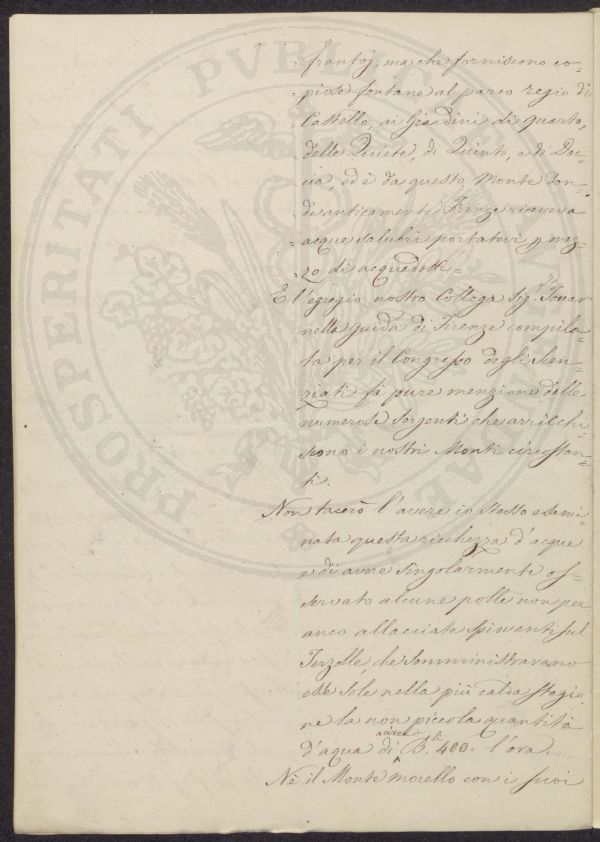 frantoj, ma che forniscono co-
piose fontane al parco regio di
Castello, ai Giardini di quarto,
delle Quiete, di Quinto, e di Doc-
cia, ed è da questo Monte don-
de anticamente Firenze riceveva
acque salubri portatevi p mez-
zo di acquedotti =
E l'egregio nostro Collega Sig.
nella Guida di Firenze compila-
ta per il Congresso degli Scen-
ziati fà pure menzione delle
numerose sorgenti che arricchi-
scono i nostri Monti circostan-
ti.
Non tacerò l'avere io stesso esami-
nata questa ricchezza d'acque
e di avere singolarmente os-
servato alcune polle non per
anco allacciate pioventi sul
Terzolle, che somministravano
esse sole nella più calda stagio
ne la non piccola quantità
d'aqua di circa B.li 400. l'ora.
Nè il Monte Morello con i suoi
PROSPERITATI PVBLICAE